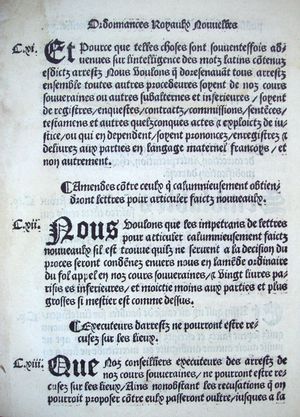 Ordonnances Royaulx Nouvelles
C.xi. Et pource que telles choses sont souventesfois ad-
venues sur lintelligence des motz latins cõtenuz
esdictz arrestz Nous voulons q̃ doresenavãt tous arrestz
ensemble toutes autres procedures soyent de noz cours
souveraines ou autres subalternes et inferieures, soyent
de registres, enquestes, contractz, commissions, sentẽces,
testamens et autres quelzconques actes & exploictz de ju-
stice, ou qui en dependent, soyent prononcez, enregistrez &
delivrez aux parties en langage maternel francoys, et
non autrement.
Amendes cõtre ceulx q̃ calumnieusement obtien-
dront lettres pour articuler faictz nouveaulx.
C.xii. Nous voulons que les impetrans de lettres
pour articuler calumnieusement faictz
nouveaulx sil est trouve quilz ne servent a la decision du
proces seront condẽnez envers nous en lamẽde ordinaire
du fol appel en noz cours souveraines, & vingt livres pa-
risis es inferieures, et moictie moins aux parties et plus
grosses si mestier est comme dessus.
Executeurs darrestz ne pourront estre re-
cusez sur les lieux.
C.xiii. Que Noz conseilliers executeurs des arrestz de
noz cours souveraines, ne pourront estre re-
cusez sur les lieux, Ains nonobstant les recusations q̃ on
pourroit proposer cõtre eulx passeront oultre, jusques a la